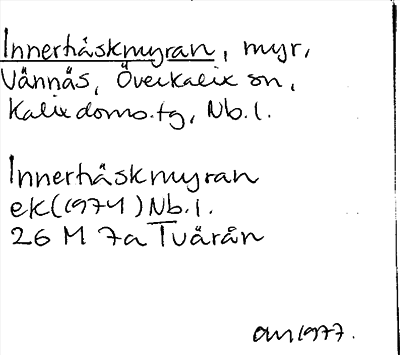 Innerhåskmyran, myr,
Vännäs, Överkalix sn,
Kalix doms.tg, Nb.l.
Innerhåskmyran
ek (1974) Nb.l.
26 M 7a Tvärån
1977.